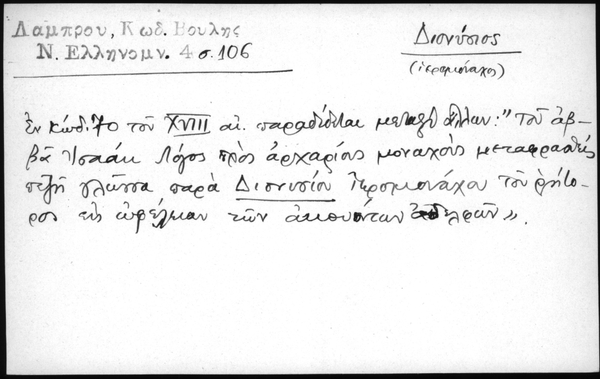 Λάμπρου, Κωδ. Βουλῆς
Ν. Ἑλληνομν. 4 σ. 106
Διονύσιος
(ἱερομόναχος)
Ἐν κώδ. 70 τοῦ XVIII αἰ. παραδίδεται μεταξὺ ἄλλων: "Τοῦ ἀβ-
βᾶ Ἰσαὰκ λόγος πρὸς ἀρχαρίους μοναχοὺς μεταφρασθεὶς
πεζῇ γλώσσῃ παρὰ Διονυσίου Ἱερομονάχου τοῦ ῥήτο-
ρος εἰς ὠφέλειαν τῶν ἀκουόντων ἀδελφῶν».